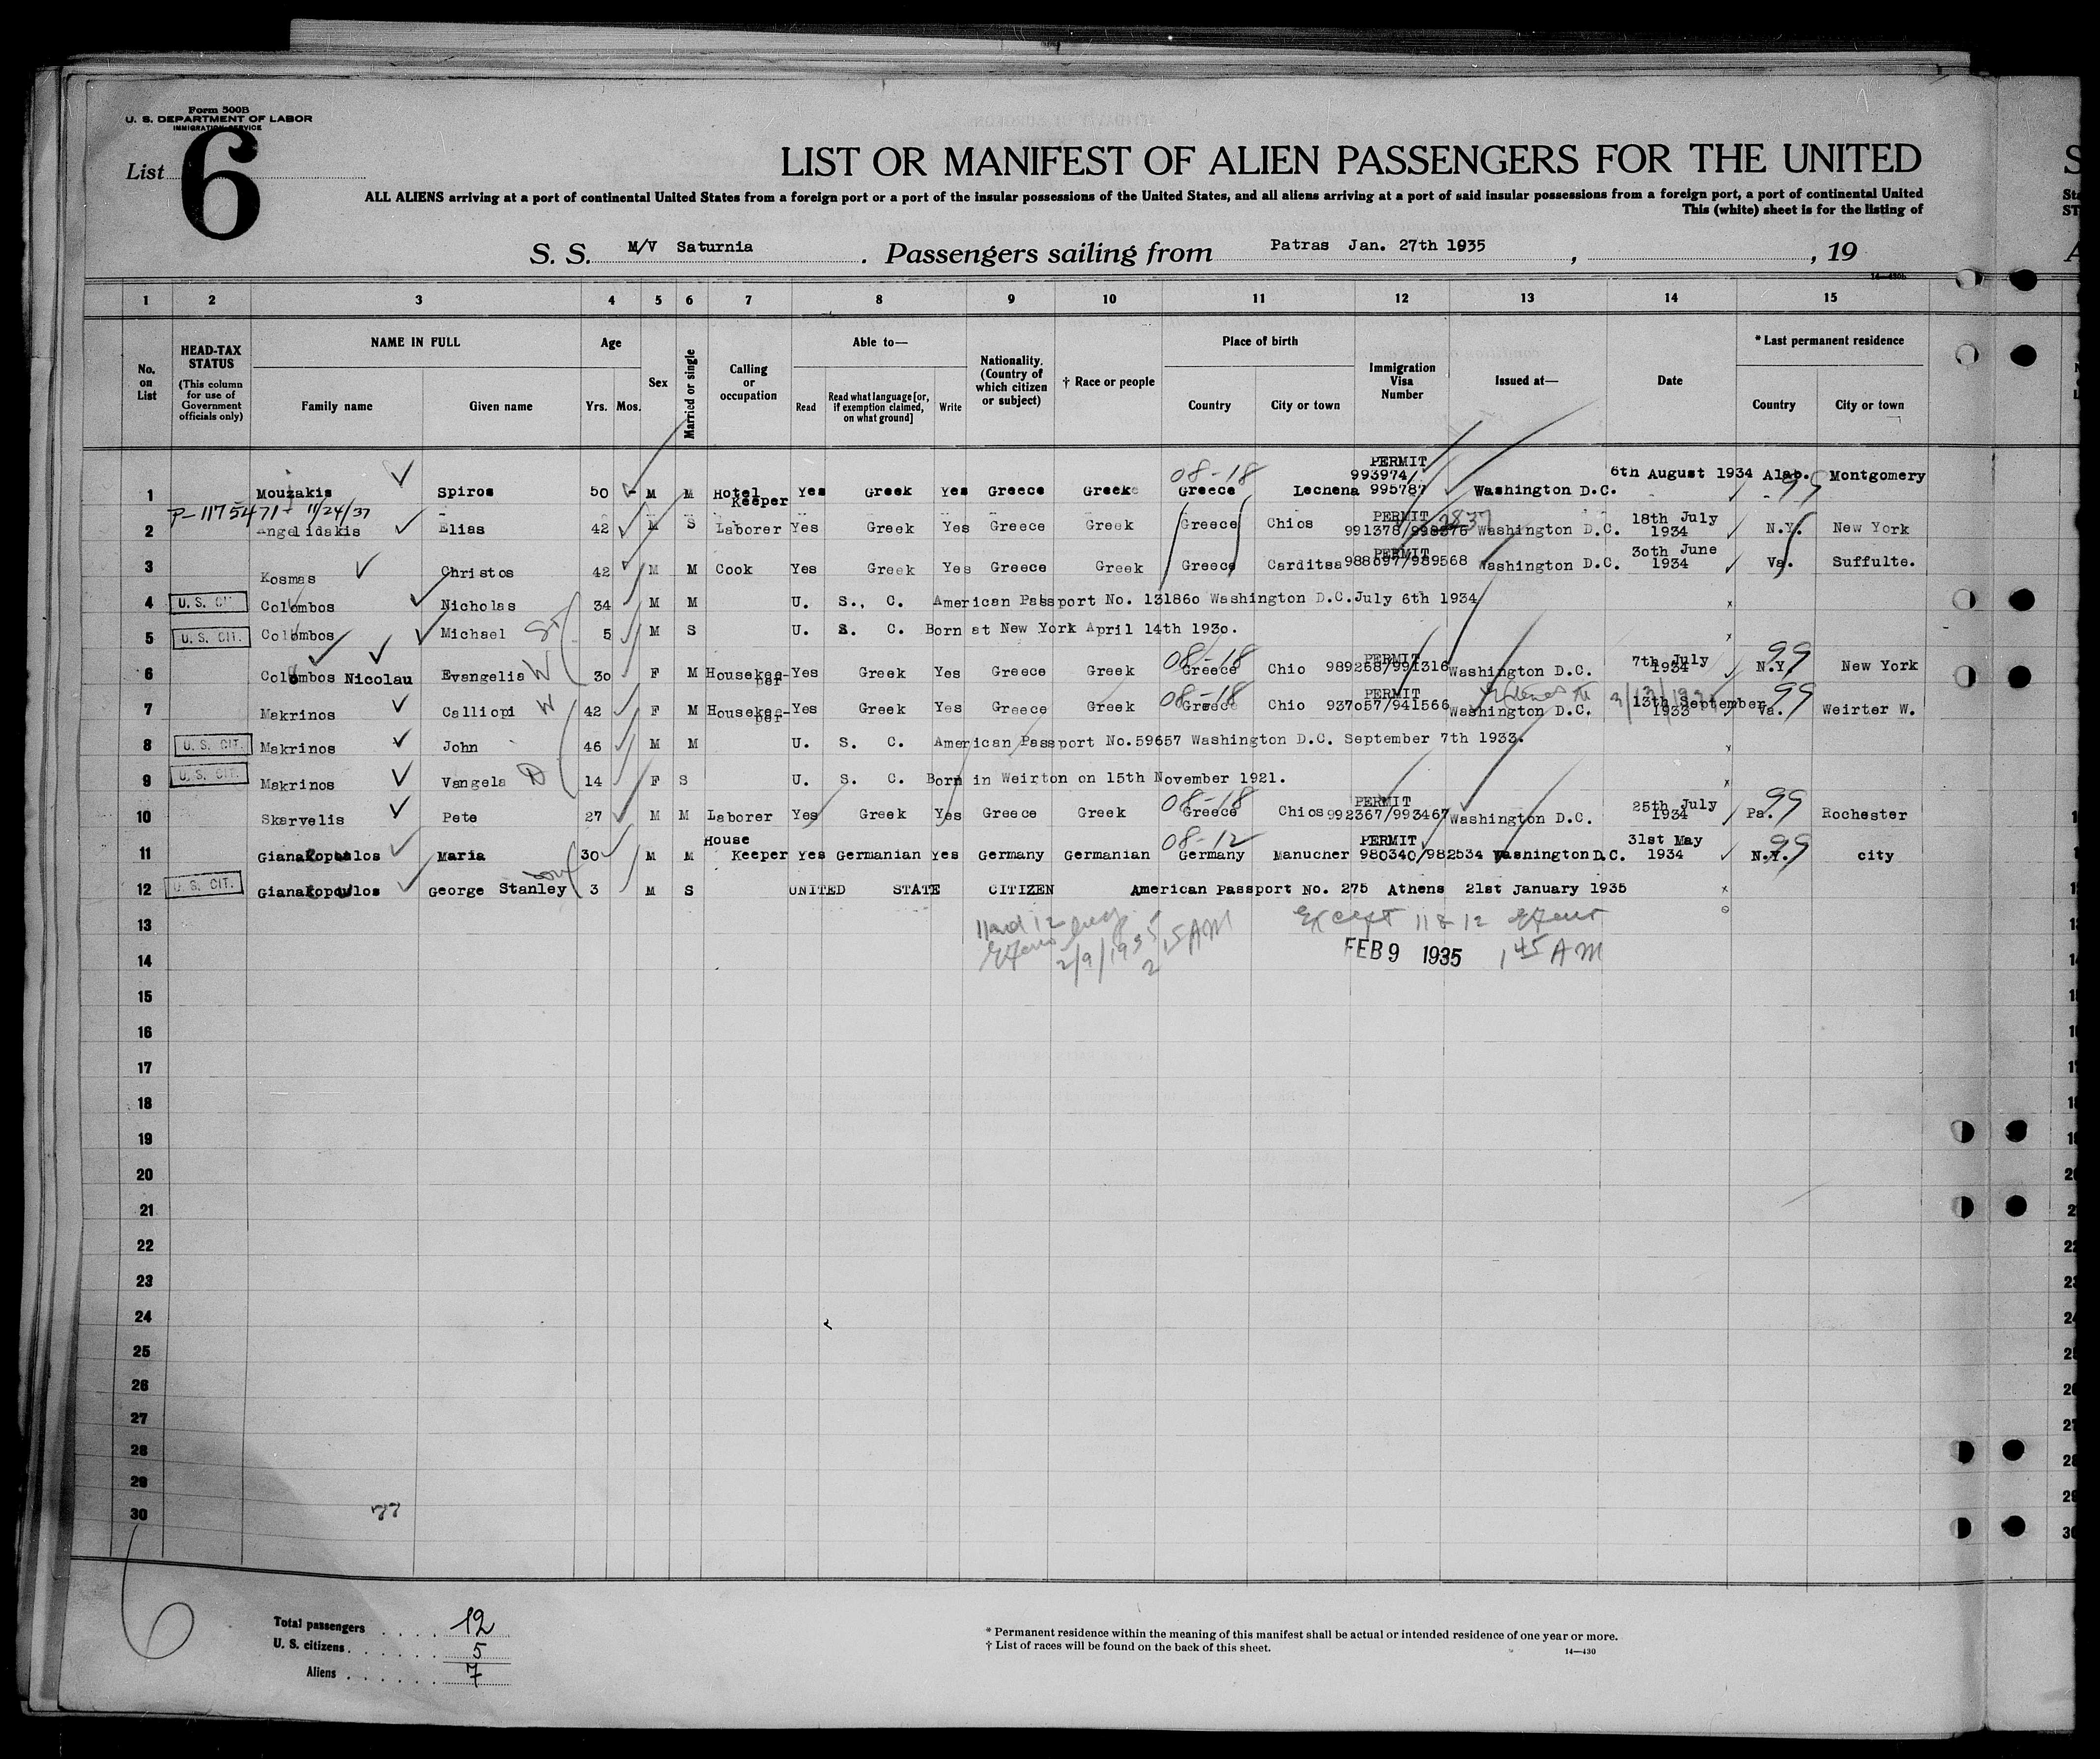 Form 500B
U. S. DEPARTMENT OF LABOR
IMMIGRATION SERVICE
List 6
LIST OR MANIFEST OF ALIEN PASSENGERS FOR THE UNITED
ALL ALIENS arriving at a port of continental United States from a foreign port or a port of the insular possessions of the United States, and all aliens arriving at a port of said insular possessions from a foreign port, a port of continental United
This (white) sheet is for the listing of
S. S. M/V Saturnia . Passengers sailing from Patras Jan. 27th 1935 , , 19
14—430b
1 2 3 4 5 6 7 8 9 10 11 12 13 14 15
No. on List
HEAD-TAX STATUS (This column for use of Government officials only)
NAME IN FULL Family name Given name
Age Yrs. Mos.
Sex
Married or single
Calling or occupation
Able to— Read Read what language [or, if exemption claimed, on what ground] Write
Nationality. (Country of which citizen or subject)
† Race or people
Place of birth Country City or town
Immigration Visa Number
Issued at—
Date
* Last permanent residence Country City or town
1 Mouzakis Spiros 50 - M M Hotel Keeper Yes Greek Yes Greece Greek 08-18 Greece Lechena PERMIT 993974/ 995787 Washington D.C. 6th August 1934 Alab. 99 Montgomery
P-1175471- 11/24/37
2 Angelidakis Elias 42 M S Laborer Yes Greek Yes Greece Greek Greece Chios PERMIT 991378/998376 Washington D.C. 18th July 1934 N.Y. New York
3 Kosmas Christos 42 M M Cook Yes Greek Yes Greece Greek Greece Carditsa PERMIT 988697/989568 Washington D.C. 30th June 1934 Va. Suffulte.
4 U. S. CIT. Colombos Nicholas 34 M M U. S., C. American Passport No. 131860 Washington D.C. July 6th 1934 x
5 U. S. CIT. Colombos Michael 5 M S U. S. C. Born at New York April 14th 1930. x
6 Colombos Nicolau Evangelia W 30 F M Housekee-per Yes Greek Yes Greece Greek 08-18 Greece Chio PERMIT 989268/991316 Washington D.C. 7th July 1934 N.Y. 99 New York
7 Makrinos Calliopi W 42 F M Housekee-per Yes Greek Yes Greece Greek 08-18 Greece Chio PERMIT 937057/941566 Washington D.C. 13th September 1933 Va. 99 Weirter W.
8 U. S. CIT. Makrinos John 46 M M U. S. C. American Passport No.59657 Washington D.C. September 7th 1933. x
9 U. S. CIT. Makrinos Vangela D 14 F S U. S. C. Born in Weirton on 15th November 1921. x
10 Skarvelis Pete 27 M M Laborer Yes Greek Yes Greece Greek 08-18 Greece Chios PERMIT 992367/993467 Washington D.C. 25th July 1934 Pa. 99 Rochester
11 Gianakopoulos Maria 30 M M House Keeper Yes Germanian Yes Germany Germanian 08-12 Germany Manucher PERMIT 980340/982534 Washington D.C. 31st May 1934 N.Y. 99 city
12 U. S. CIT. Gianakopoulos George Stanley son 3 M S UNITED STATE CITIZEN American Passport No. 275 Athens 21st January 1935 x
13
Except 11 & 12
14
2/9/1935 2 15 AM
FEB 9 1935 1 45 AM
15
16
17
18
19
20
21
22
23
24
25
26
27
28
29
30
77
6
Total passengers 12
U. S. citizens 5
Aliens 7
* Permanent residence within the meaning of this manifest shall be actual or intended residence of one year or more.
† List of races will be found on the back of this sheet.
14—430